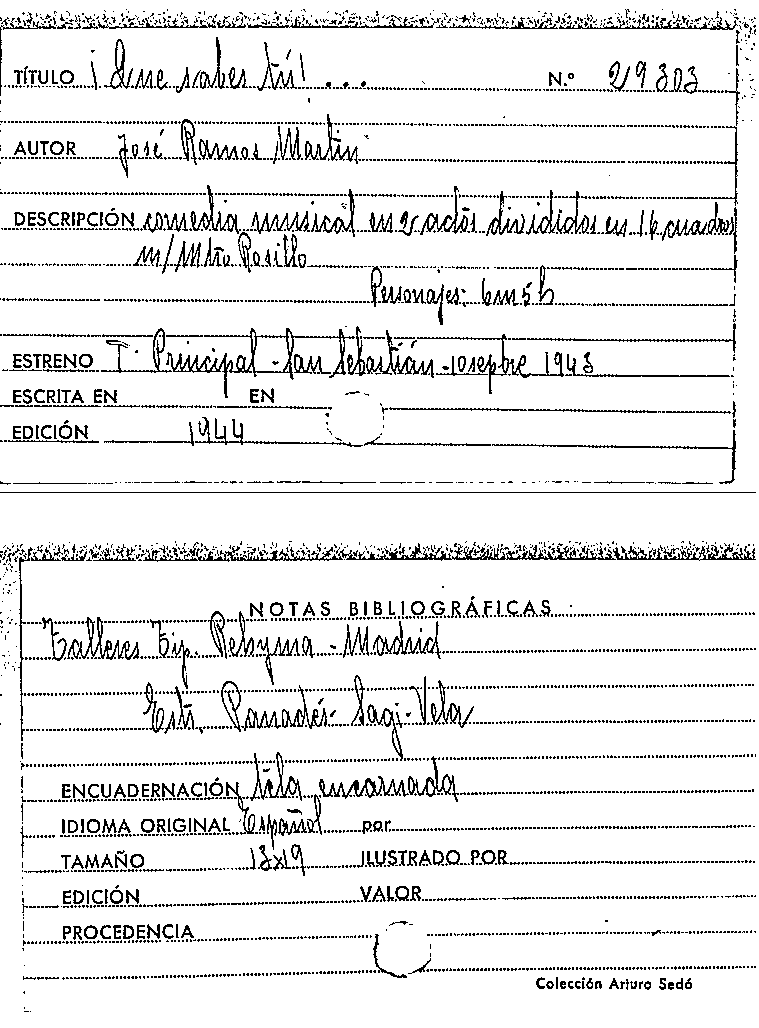 TÍTULO ¡Que sabes tú! ... N.º 29303
AUTOR José Ramos Martin
DESCRIPCIÓN comedia musical en 2 actos divididos en 16 cuadros
m/ Mtro Rosillo
Personajes: 6m 5h
ESTRENO T. Principal - San Sebastián - 10 sepbre 1943
ESCRITA EN EN
EDICIÓN 1944
NOTAS BIBLIOGRÁFICAS
Talleres Tip. Rehyma - Madrid
Estr. Panadés - Sagi-Vela
ENCUADERNACIÓN tela encarnada
IDIOMA ORIGINAL Español por
TAMAÑO 13x19 ILUSTRADO POR
EDICIÓN VALOR
PROCEDENCIA
Colección Arturo Sedó